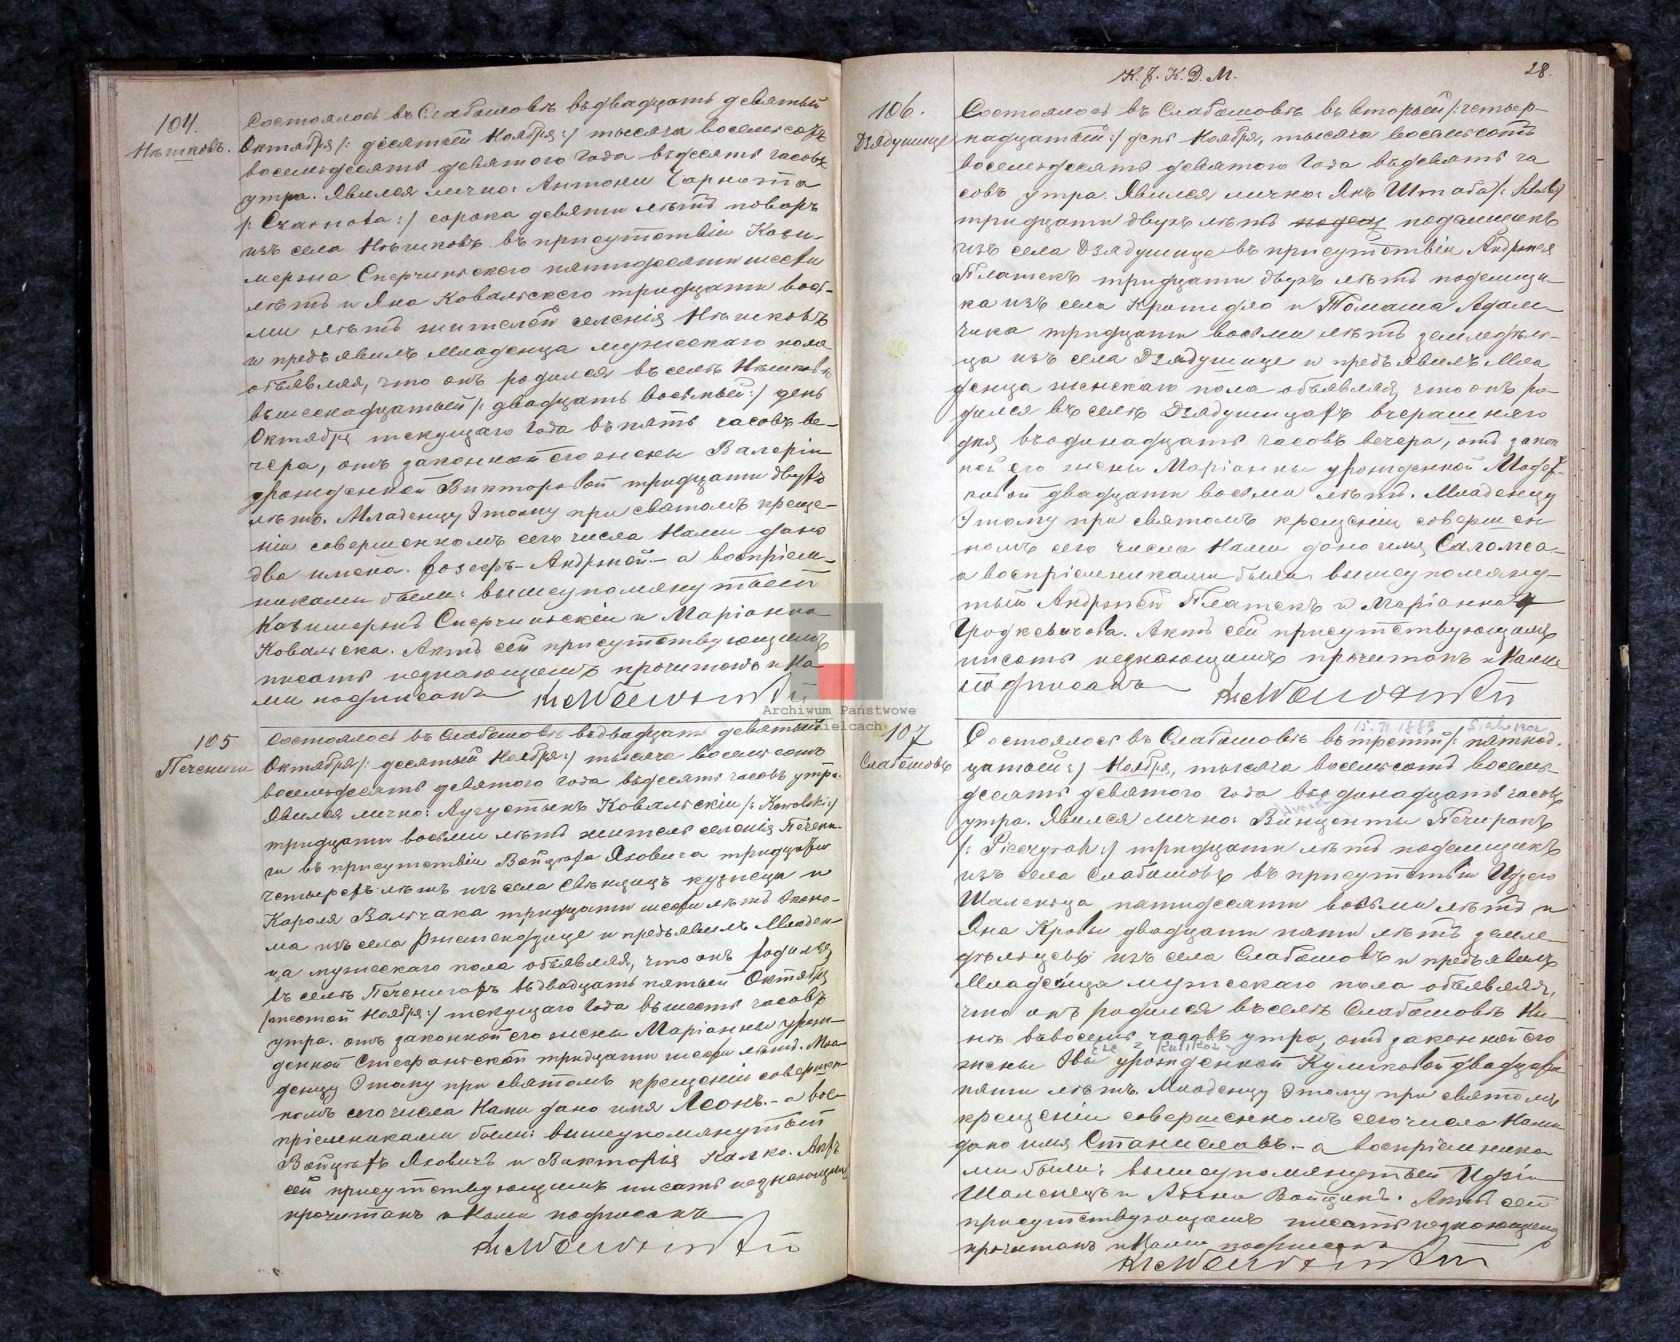 104.
Нѣшковъ.
Состоялось въ Слабошовѣ въ двадцать девятый
Октября /: десятый Ноября :/ тысяча восемьсотъ
восемьдесятъ девятого Года въ десять часовъ
утра. Явился лично: Антони Чарнота
/: Czarnota :/ сорока девяти лѣтъ поваръ
изъ села Нѣшковъ въ присутствіи Кази-
мержа Сперчинского пятидесяти шести
лѣтъ и Яна Ковальского тридцати вось-
ми лѣтъ жителей селенія Нѣшковъ
и предъявилъ младенца мужескаго пола
объявляя, что онъ родился въ селѣ Нѣшковѣ
въ шеснадцатый /: двадцать восьмый :/ день
Октября текущаго Года въ пять часовъ ве-
чера, отъ законной его жены Валеріи
урожденной Викторовой тридцати двухъ
лѣтъ. Младенцу Этому при святомъ креще-
ніи совершенномъ сего числа Нами дано
два имена. Юзефъ-Андржей.- а воспріем-
никами были: вышеупомянутый
Казимержъ Сперчинскій и Маріанна
Ковальска. Актъ сей присутствующимъ
писать незнающимъ прочитанъ и На-
ми подписанъ
105
Печениги
Состоялось въ Слабошовѣ въ двадцать девятый
Октября /: десятый Ноября :/ тысяча восемьсотъ
восемьдесятъ девятого Года въ десять часовъ утра.
Явился лично: Аугустынъ Ковальскій /: Kowalski :/
тридцати восьми лѣтъ житель селенія Печени-
ги въ присутствіи Войцѣха Яховича тридцати
четырехъ лѣтъ изъ села Свѣнцицъ кузнеца и
Кароля Вальчака тридцати шести лѣтъ Эконо-
ма изъ села Ржемендзице и предъявилъ Младен-
ца мужескаго пола объявляя, что онъ родился
въ селѣ Печенигахъ въ двадцать пятый Октября
/: шестой Ноября :/ текущаго Года въ шесть часовъ
утра. отъ законной его жены Маріанны урож-
денной Стефанской тридцати шести лѣтъ. Мла-
денцу Этому при святомъ крещеніи совершен-
номъ сего числа Нами дано имя Леонъ.- а вос-
пріемниками были: вышеупомянутый
Войцѣхъ Яховичъ и Викторія Калко. Актъ
сей присутствующимъ писать незнающимъ
прочитанъ и Нами подписанъ
К. J. К. D. М.
28.
106.
Дзядушице
Состоялось въ Слабошовѣ въ вторый /: четыр-
надцатый :/ день Ноября, тысяча восемьсотъ
восемьдесятъ девятого Года въ девять ча
совъ утра. Явился лично: Янъ Штаба /:
тридцати двухъ лѣтъ поденщикъ
изъ села Дзядушице въ присутствіи Андржея
Платекъ тридцати двухъ лѣтъ поденщи-
ка изъ села Крошидло и Томаша Адам-
чика тридцати восьми лѣтъ земледѣль-
ца изъ села Дзядушице и предъявилъ Мла
денца женскаго пола объявляя, что онъ ро-
дился въ селѣ Дзядушицахъ вчерашняго
дня въ одинадцать часовъ вечера, отъ закон
ной его жены Маріанны урожденной
двадцати восьми лѣтъ. Младенцу
Этому при святомъ крещеніи совершен
номъ сего числа Нами дано имя Саломеа-
а воспріемниками были: вышеупомяну-
тый Андржей Платекъ и Маріанна
Гродкевичова. Актъ сей присутствующимъ
писать незнающимъ прочитанъ и Нами
подписанъ
107
Слабошовъ
15. XI 1889
Состоялось въ Слабошовѣ въ третій /: пятнад-
цатый :/ Ноября, тысяча восемьсотъ восемь-
десятъ девятого Года въ одинадцать часовъ
утра. Явился лично: Винценты Печиракъ
тридцати лѣтъ поденщикъ
изъ села Слабошовъ въ присутствіи Идзего
Шаленца пятидесяти восьми лѣтъ и
Яна Кровы двадцати пяти лѣтъ земле-
дѣльцевъ изъ села Слабошовъ и предъявилъ
Младенца мужескаго пола объявляя,
что онъ родился въ селѣ Слабошовѣ Ны-
нѣ въ восемь часовъ утра, отъ законной его
жены Эвы урожденной Куликовой двадцати
пяти лѣтъ. Младенцу Этому при святомъ
крещеніи совершенномъ сего числа Нами
дано имя Станиславъ.- а воспріемника-
ми были: вышеупомянутый Идзи
Шаленецъ и Анна Войцикъ. Актъ сей
присутствующимъ писать незнающимъ
прочитанъ и Нами подписанъ
Archiwum Państwowe
Kielcach